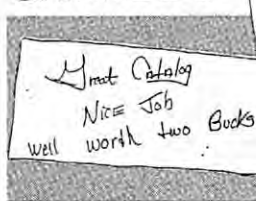 Great Catalog
Nice Job
Well worth two Bucks